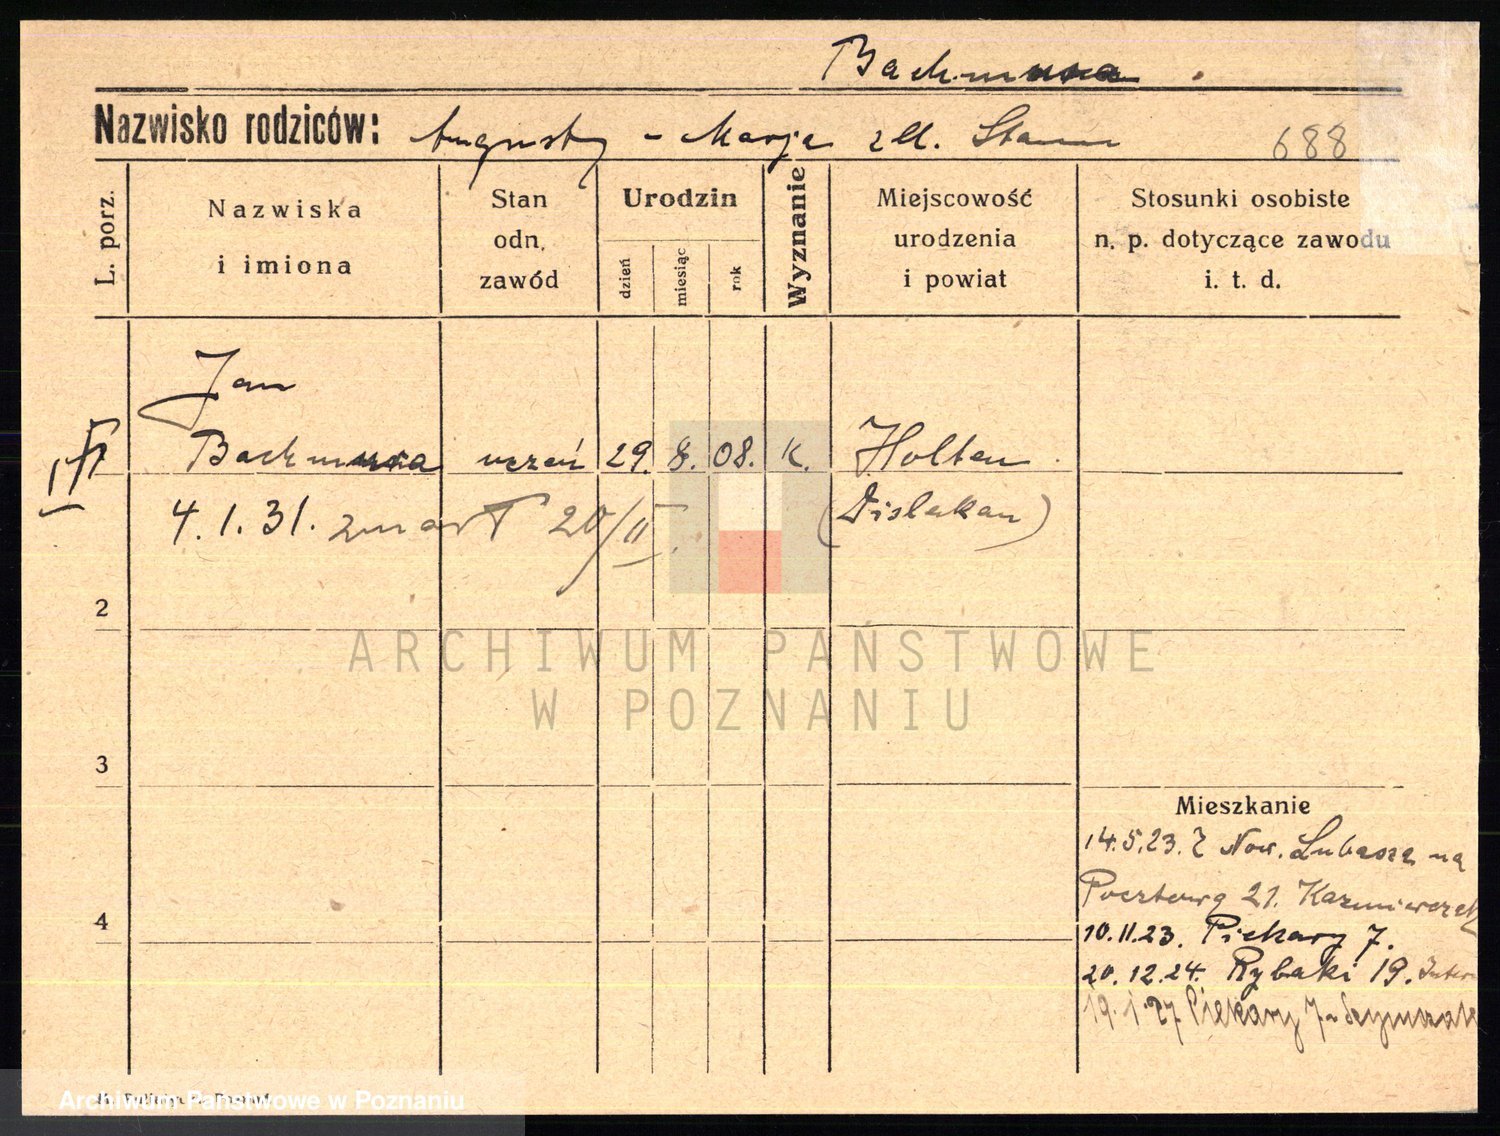 Nazwisko rodziców: Augusty - Marja z d. Stamm
688
L. porz.
Nazwiska
i imiona
Stan
odn.
zawód
Urodzin
dzień
miesiąc
rok
Wyznanie
Miejscowość
urodzenia
i powiat
Stosunki osobiste
n. p. dotyczące zawodu
i. t. d.
Jan
uczeń 29. 8. 08. K. Holten
4. 1. 31. zmarł 20/II. (Dislaken)
2
ARCHIWUM PAŃSTWOWE
W POZNANIU
3
Mieszkanie
14.5.23. Z Now. Lubosza na
Pocztową 21.
4
10.11.23. Piekary 7.
20.12.24. Rybaki 19.
19.1.27 Piekary 7
Archiwum Państwowe w Poznaniu